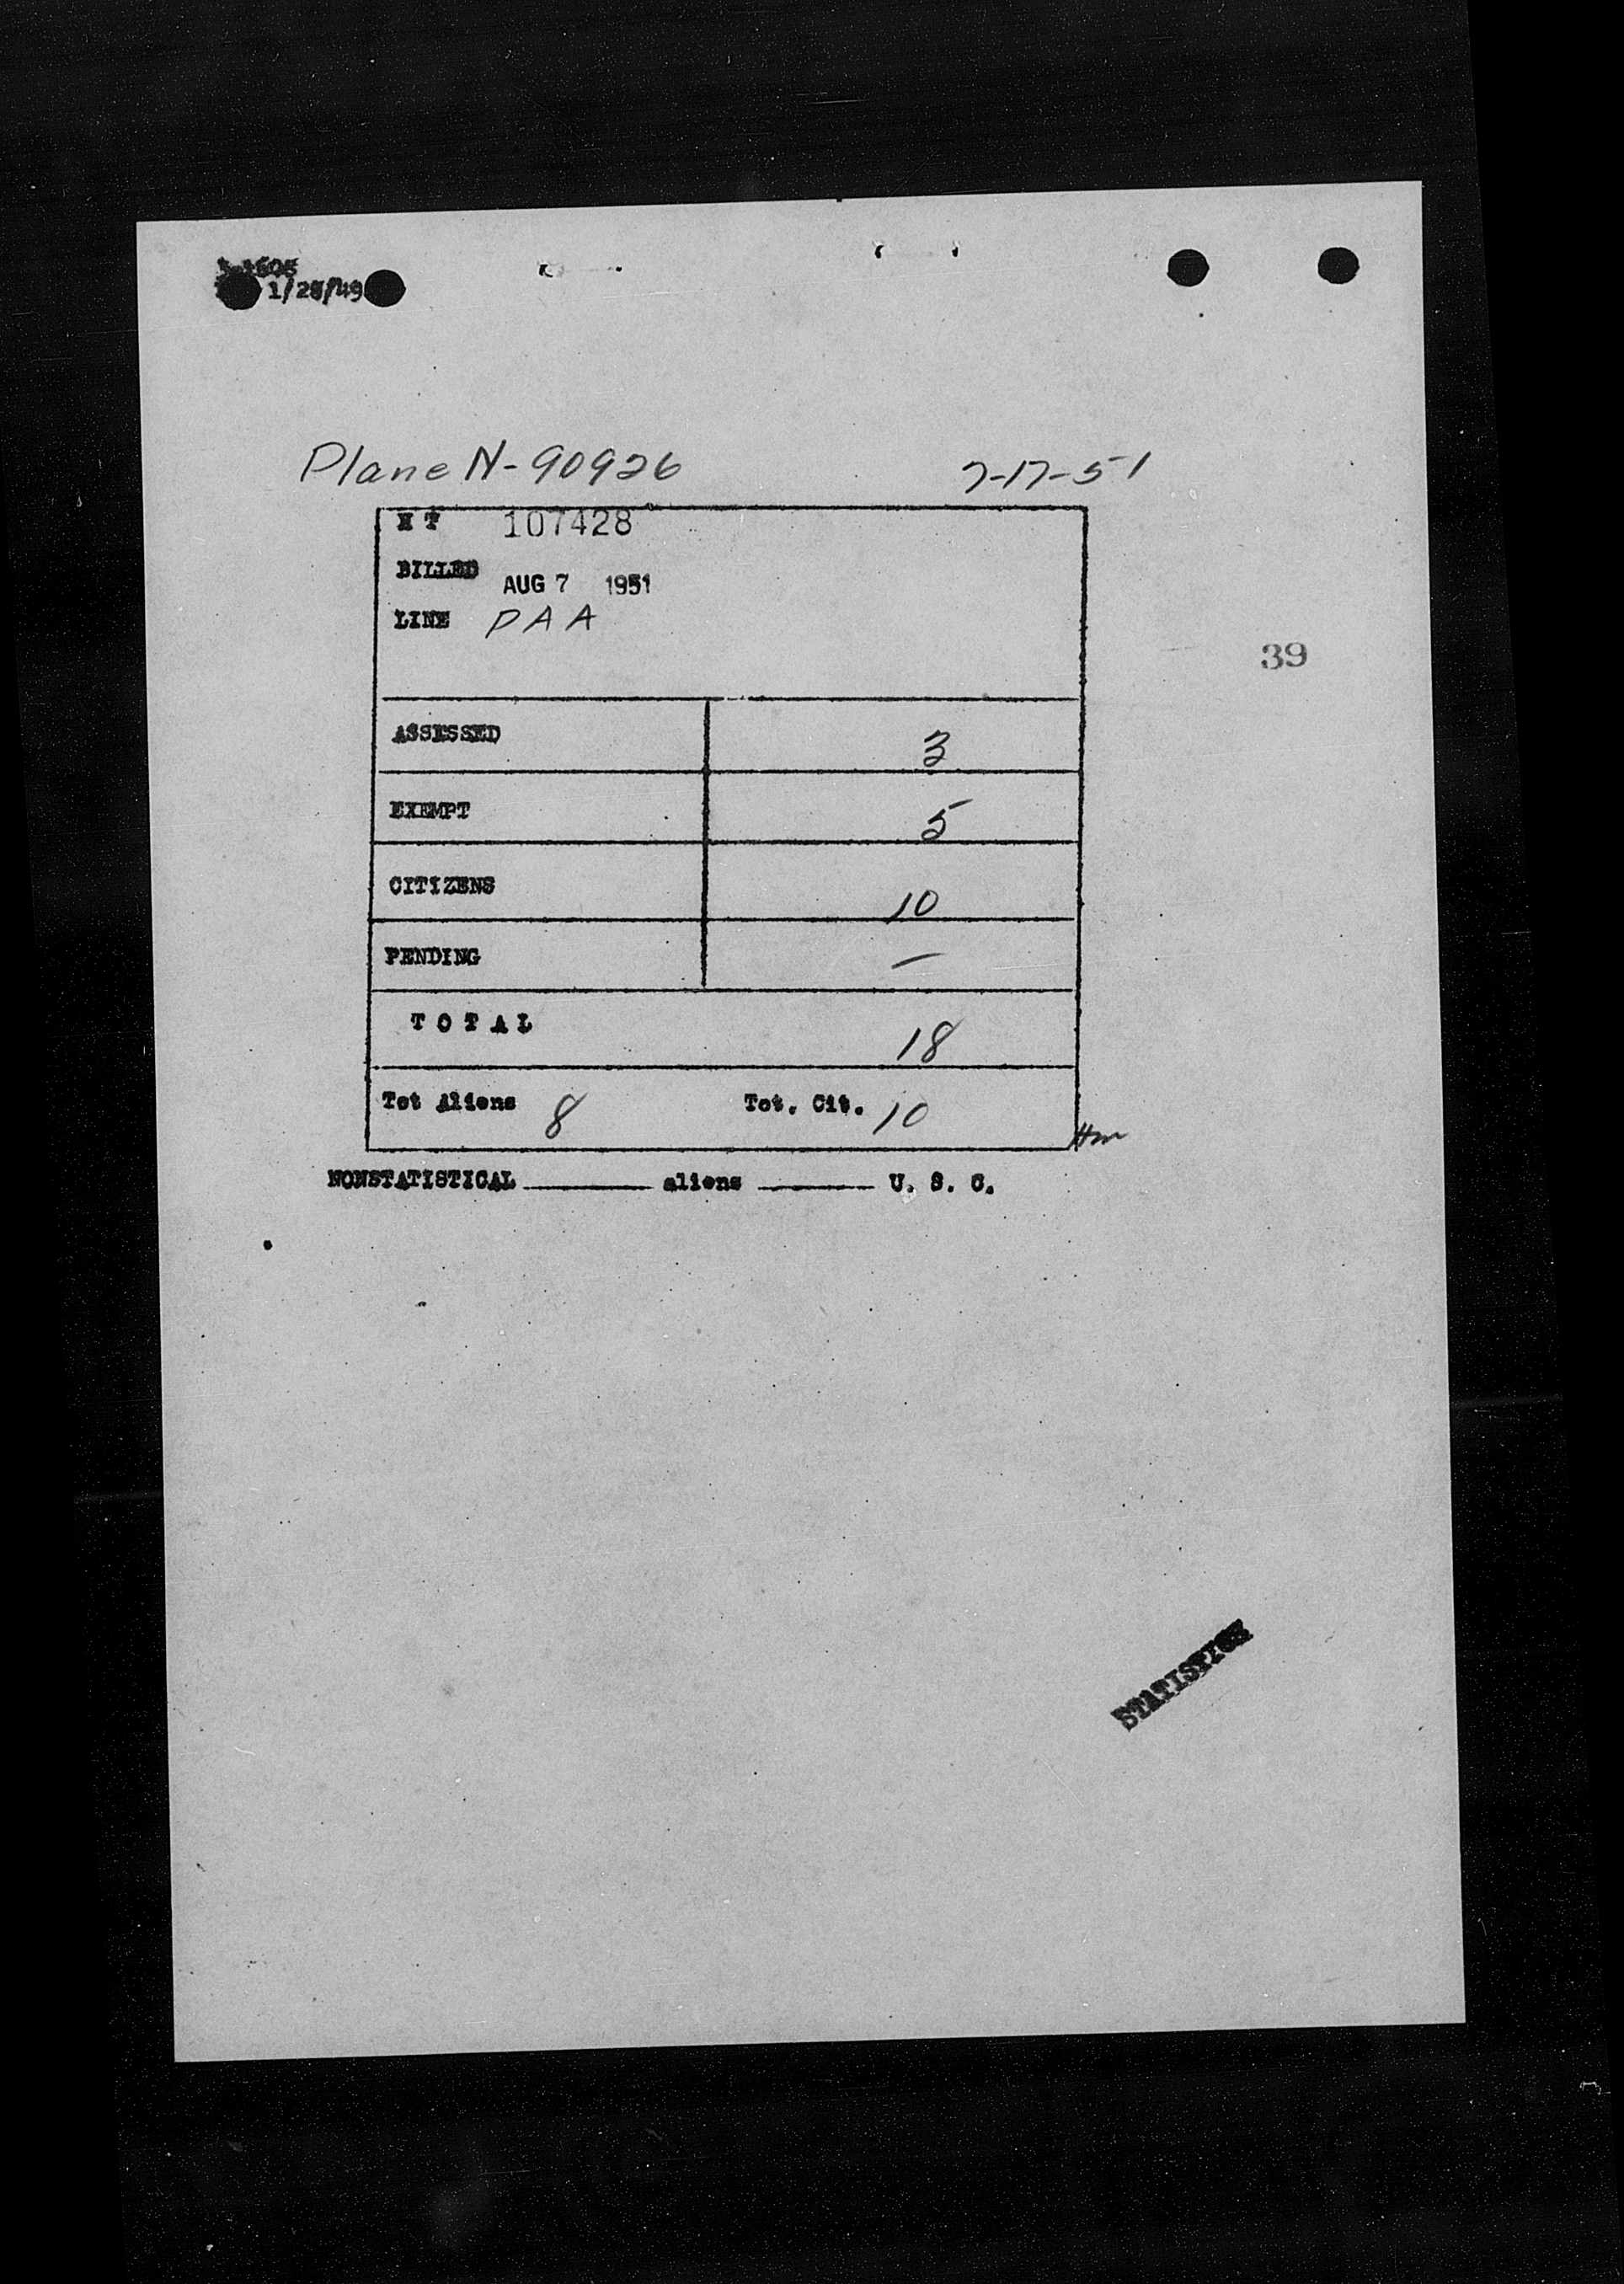 1/28/49
Plane N-90926 7-17-51
H T 107428
BILLED AUG 7 1951
LINE PAA
39
ASSESSED 3
EXEMPT 5
CITIZENS 10
PENDING —
TOTAL 18
Tot Aliens 8 Tot. Cit. 10
NONSTATISTICAL ______ aliens ______ U. S. C.
STATISTICS